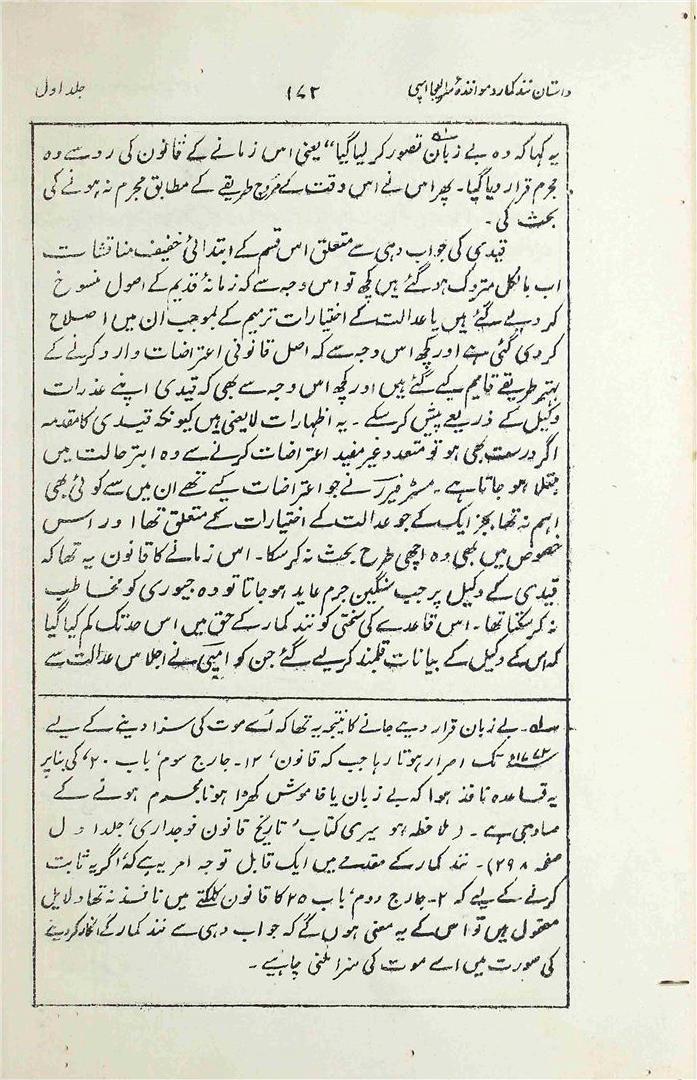 داستان نند کمار و مواخذۂ سر الیجا امپی ۱۷۲ جلد اول
یہ کہا کہ وہ بے زبان تصور کر لیا گیا“ یعنی اس زمانے کے قانون کی رو سے وہ
مجرم قرار دیا گیا۔ پھر اس نے اس وقت کے مروج طریقے کے مطابق مجرم نہ ہونے کی
بحث کی۔
قیدی کی جواب دہی سے متعلق اس قسم کے ابتدائی خفیف مناقشات
اب بالکل متروک ہو گئے ہیں کچھ تو اس وجہ سے کہ زمانۂ قدیم کے اصول منسوخ
کر دیے گئے ہیں یا عدالت کے اختیارات ترمیم کے بموجب ان میں اصلاح
کر دی گئی ہے اور کچھ اس وجہ سے کہ اصل قانونی اعتراضات وارد کرنے کے
بہتر طریقے قایم کیے گئے ہیں اور کچھ اس وجہ سے بھی کہ قیدی اپنے عذرات
وکیل کے ذریعے پیش کر سکے۔ یہ اظہارات لایعنی ہیں کیونکہ قیدی کا مقدمہ
اگر درست بھی ہو تو متعدد غیر مفید اعتراضات کرنے سے وہ ابتر حالت میں
مبتلا ہو جاتا ہے۔ مسٹر فیرر نے جو اعتراضات کیے تھے ان میں سے کوئی بھی
اہم نہ تھا بجز ایک کے جو عدالت کے اختیارات کے متعلق تھا اور اس
خصوص میں بھی وہ اچھی طرح بحث نہ کر سکا۔ اس زمانے کا قانون یہ تھا کہ
قیدی کے وکیل پر جب سنگین جرم عاید ہو جاتا تو وہ جیوری کو مخاطب
نہ کر سکتا تھا۔ اس قاعدے کی سختی کو نند کمار کے حق میں اس حد تک کم کیا گیا
کہ اس کے وکیل کے بیانات قلمبند کر لیے گئے جن کو امپی نے اجلاس عدالت سے
۱؎۔ بے زبان قرار دیے جانے کا نتیجہ یہ تھا کہ اسے موت کی سزا دینے کے لیے
۱۷۷۲ء تک اصرار ہوتا رہا جب کہ قانون، ۱۲۔ جارج سوم، باب ۲۰، کی بنا پر
یہ قاعدہ نافذ ہوا کہ بے زبان یا خاموش کھڑا ہونا مجرم ہونے کے
مساوی ہے۔ (ملاحظہ ہو میری کتاب، تاریخ قانون فوجداری، جلد اول
صفحہ ۲۹۸)۔ نند کمار کے مقدمے میں ایک قابل توجہ امر یہ ہے کہ اگر یہ ثابت
کرنے کے لیے کہ ۲۔ جارج دوم، باب ۲۵ کا قانون کلکتے میں نافذ نہ تھا دلایل
معقول ہیں تو اس کے یہ معنی ہوں گے کہ جواب دہی سے نند کمار کے انکار کر دینے
کی صورت میں اسے موت کی سزا ملنی چاہیے۔